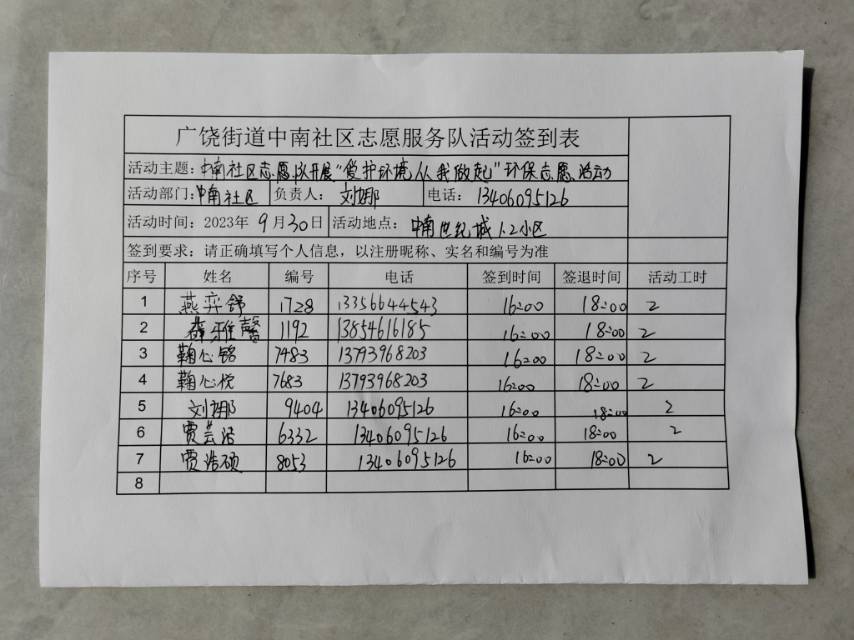 广饶街道中南社区志愿服务队活动签到表
活动主题：中南社区志愿队开展“爱护环境，从我做起”环保志愿活动
活动部门：中南社区 负责人：刘娜 电话：13406095126
活动时间：2023年9月30日 活动地点：中南世纪城1.2小区
签到要求：请正确填写个人信息，以注册昵称、实名和编号为准
序号 姓名 编号 电话 签到时间 签退时间 活动工时
1 燕弈舒 1728 13356644543 16:00 18:00 2
2 雅馨 1192 13854616185 16:00 18:00 2
3 鞠心铭 7483 13793968203 16:00 18:00 2
4 鞠心悦 7683 13793968203 16:00 18:00 2
5 刘娜 9404 13406095126 16:00 18:00 2
6 贾芸浩 6332 13406095126 16:00 18:00 2
7 贾浩硕 8053 13406095126 16:00 18:00 2
8